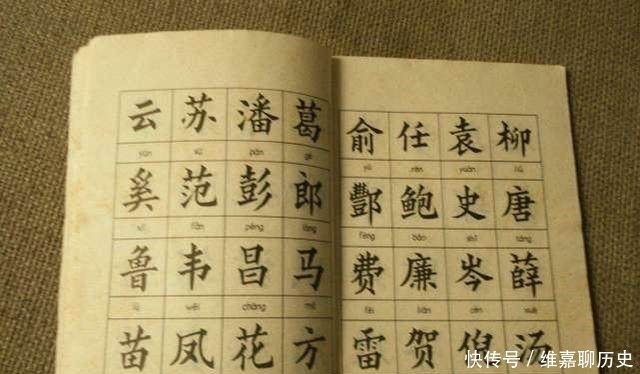 云 苏 潘 葛
yún sū pān gě
奚 范 彭 郎
xī fàn péng láng
鲁 韦 昌 马
lǔ wéi chāng mǎ
苗 凤 花 方
俞 任 袁 柳
yú rén yuán liǔ
酆 鲍 史 唐
fēng bào shǐ táng
费 廉 岑 薛
fèi lián cén xuē
雷 贺 倪 汤
快传号/维嘉聊历史